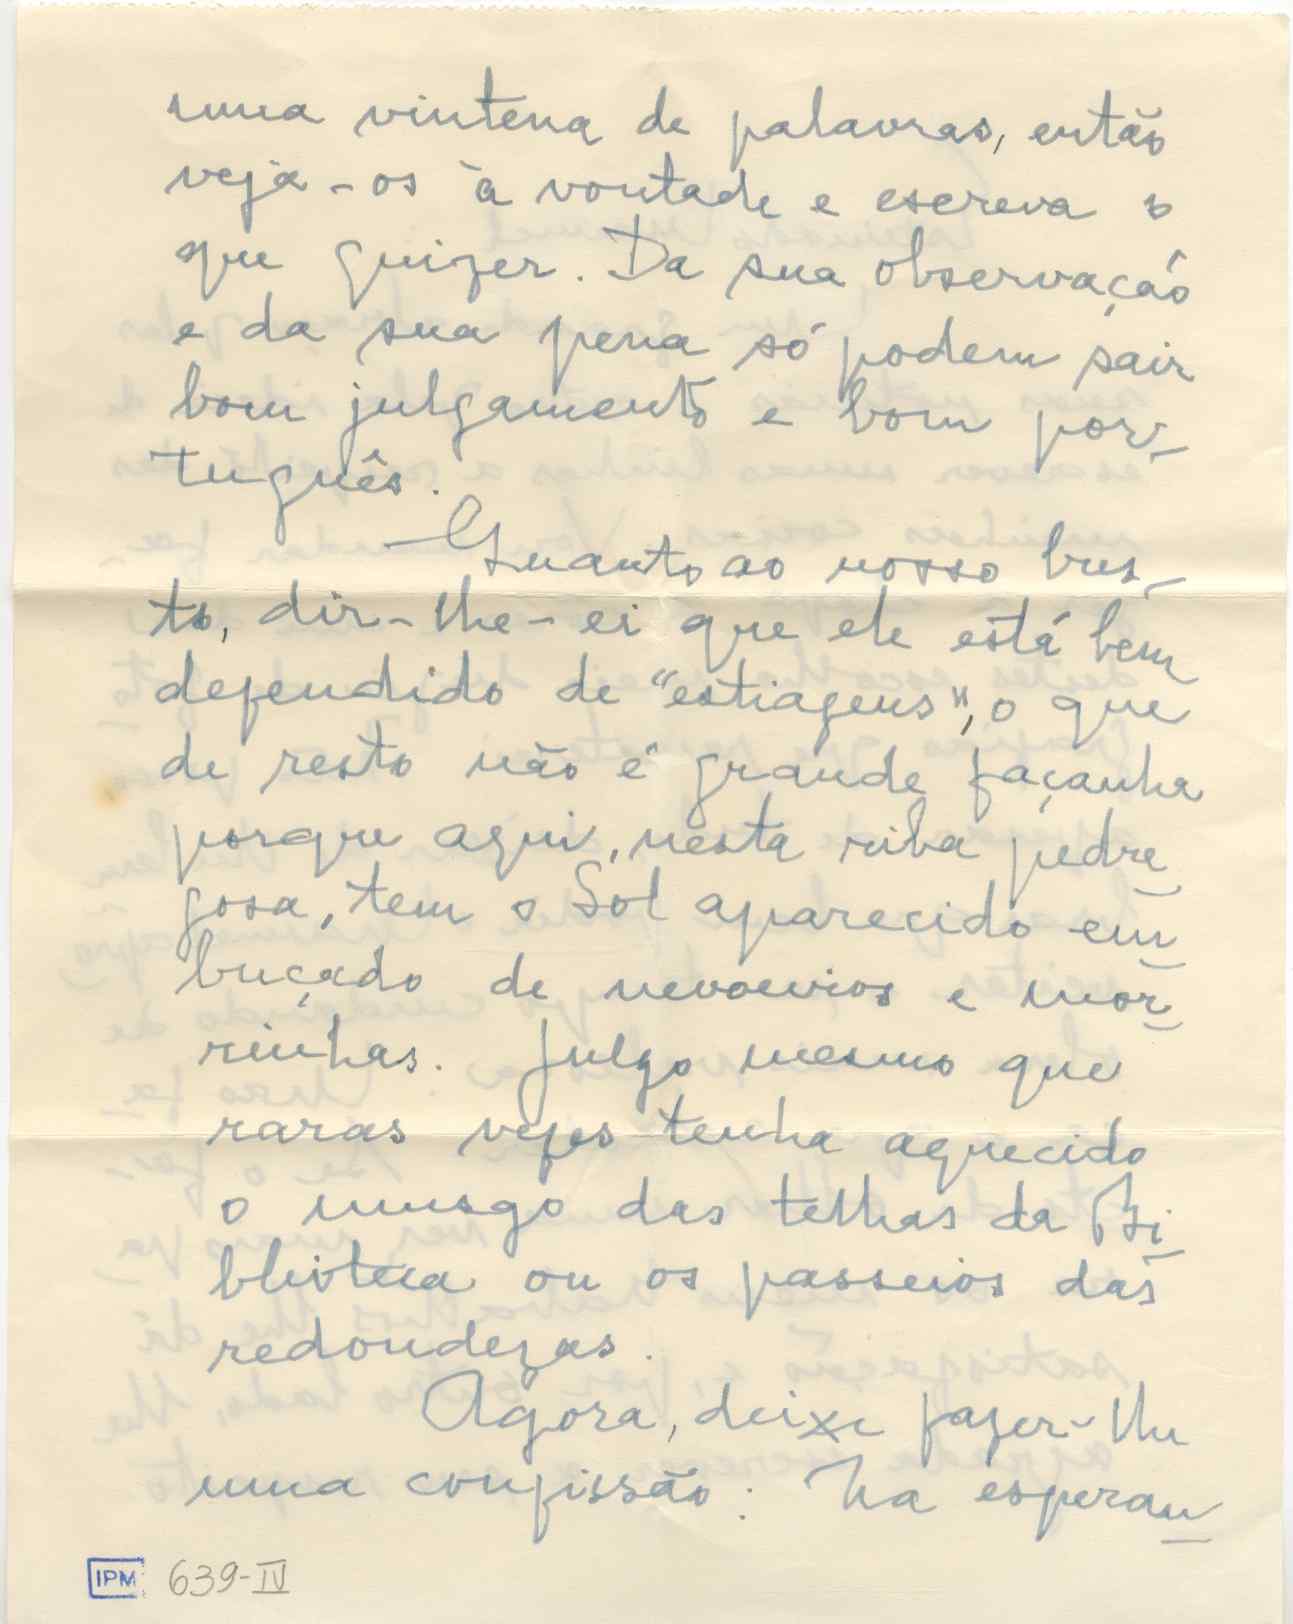 uma vintena de palavras, então
veja-os à vontade e escreva o
que quizer. Da sua observação
e da sua pena só podem sair
bom julgamento e bom por-
tuguês.
— Quanto ao nosso bus-
to, dir-lhe-ei que ele está bem
defendido de "estiagens", o que
de resto não é grande façanha
porque aqui, nesta riba pedre-
gosa, tem o Sol aparecido em-
buçado de nevoeiros e mor-
rinhas. Julgo mesmo que
raras vezes tenha aquecido
o musgo das telhas da Bi-
blioteca ou os passeios das
redondezas.
Agora, deixe fazer-lhe
uma confissão: na esperan-
IPM 639-IV